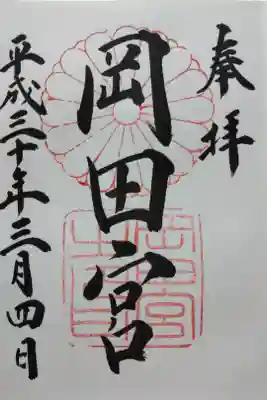 奉拝
岡田宮
平成三十年三月四日